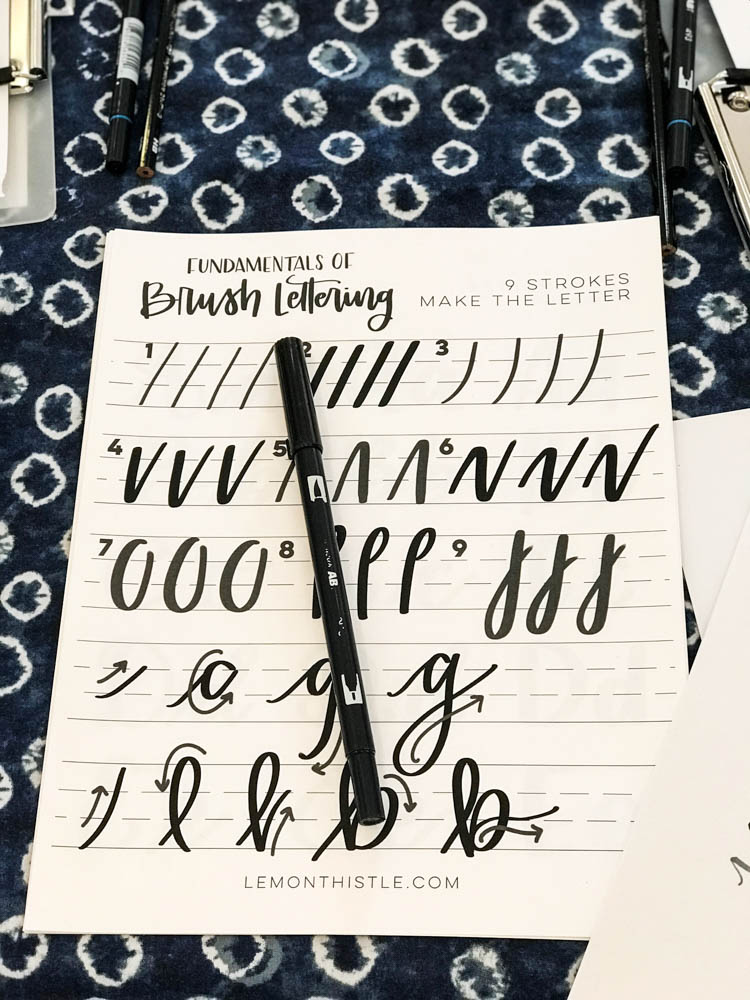 FUNDAMENTALS OF
Brush Lettering
9 STROKES
MAKE THE LETTER
1
2
3
4
5
6
7
8
9
g
b
LEMONTHISTLE.COM
AB